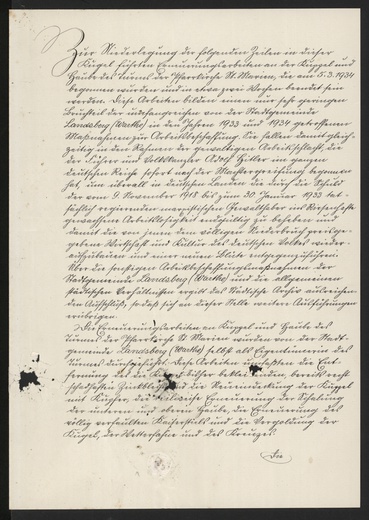 Zur Niederlegung der folgenden Zeilen in dieser
Kugel führten Erneuerungsarbeiten an der Kuppel und
Haube des Turms der Pfarrkirche St. Marien, die am 5.3.1934
begonnen wurden und in etwa zwei Wochen beendet sein
werden. Diese Arbeiten bilden einen nur sehr geringen
Bruchteil der umfangreichen von der Stadtgemeinde
Landsberg (Warthe) in den Jahren 1933 und 1934 getroffenen
Maßnahmen zur Arbeitsbeschaffung. Sie fallen damit gleich-
zeitig in den Rahmen der gewaltigen Arbeitsschlacht, die
der Führer und Volkskanzler Adolf Hitler im ganzen
deutschen Reiche sofort nach der Machtergreifung begonnen
hat, um überall in deutschen Landen die durch die Schuld
der vom 9. November 1918 bis zum 30. Januar 1933 tat-
sächlich regierenden marxistischen Gewalthaber ins Riesenhafte
gewachsene Arbeitslosigkeit endgültig zu beheben und
damit die von jenen dem völligen Niederbruch preisge-
gebene Wirtschaft und Kultur des deutschen Volkes wieder
aufzubauen und einer neuen Blüte entgegenzuführen.
Über die sonstigen Arbeitsbeschaffungsmaßnahmen der
Stadtgemeinde Landsberg (Warthe) und die allgemeinen
städtischen Verhältnisse ergibt das städtische Archiv ausreichen-
den Aufschluß, sodaß sich an dieser Stelle weitere Ausführungen
erübrigen.
Die Erneuerungsarbeiten an Kuppel und Haube des
Turmes der Pfarrkirche St. Marien wurden von der Stadt-
gemeinde Landsberg (Warthe) selbst als Eigentümerin des
Turmes durchgeführt. Diese Arbeiten umfaßten die Ent-
fernung des die Kuppel bisher bekleidenden, bereits recht
schadhaften Zinkblechs und die Neueindeckung der Kuppel
mit Kupfer, die teilweise Erneuerung der Schalung
der unteren und oberen Haube, die Erneuerung des
völlig verfaulten Kaiserstiels und die Vergoldung der
Kugel, der Wetterfahne und des Kreuzes.
Die